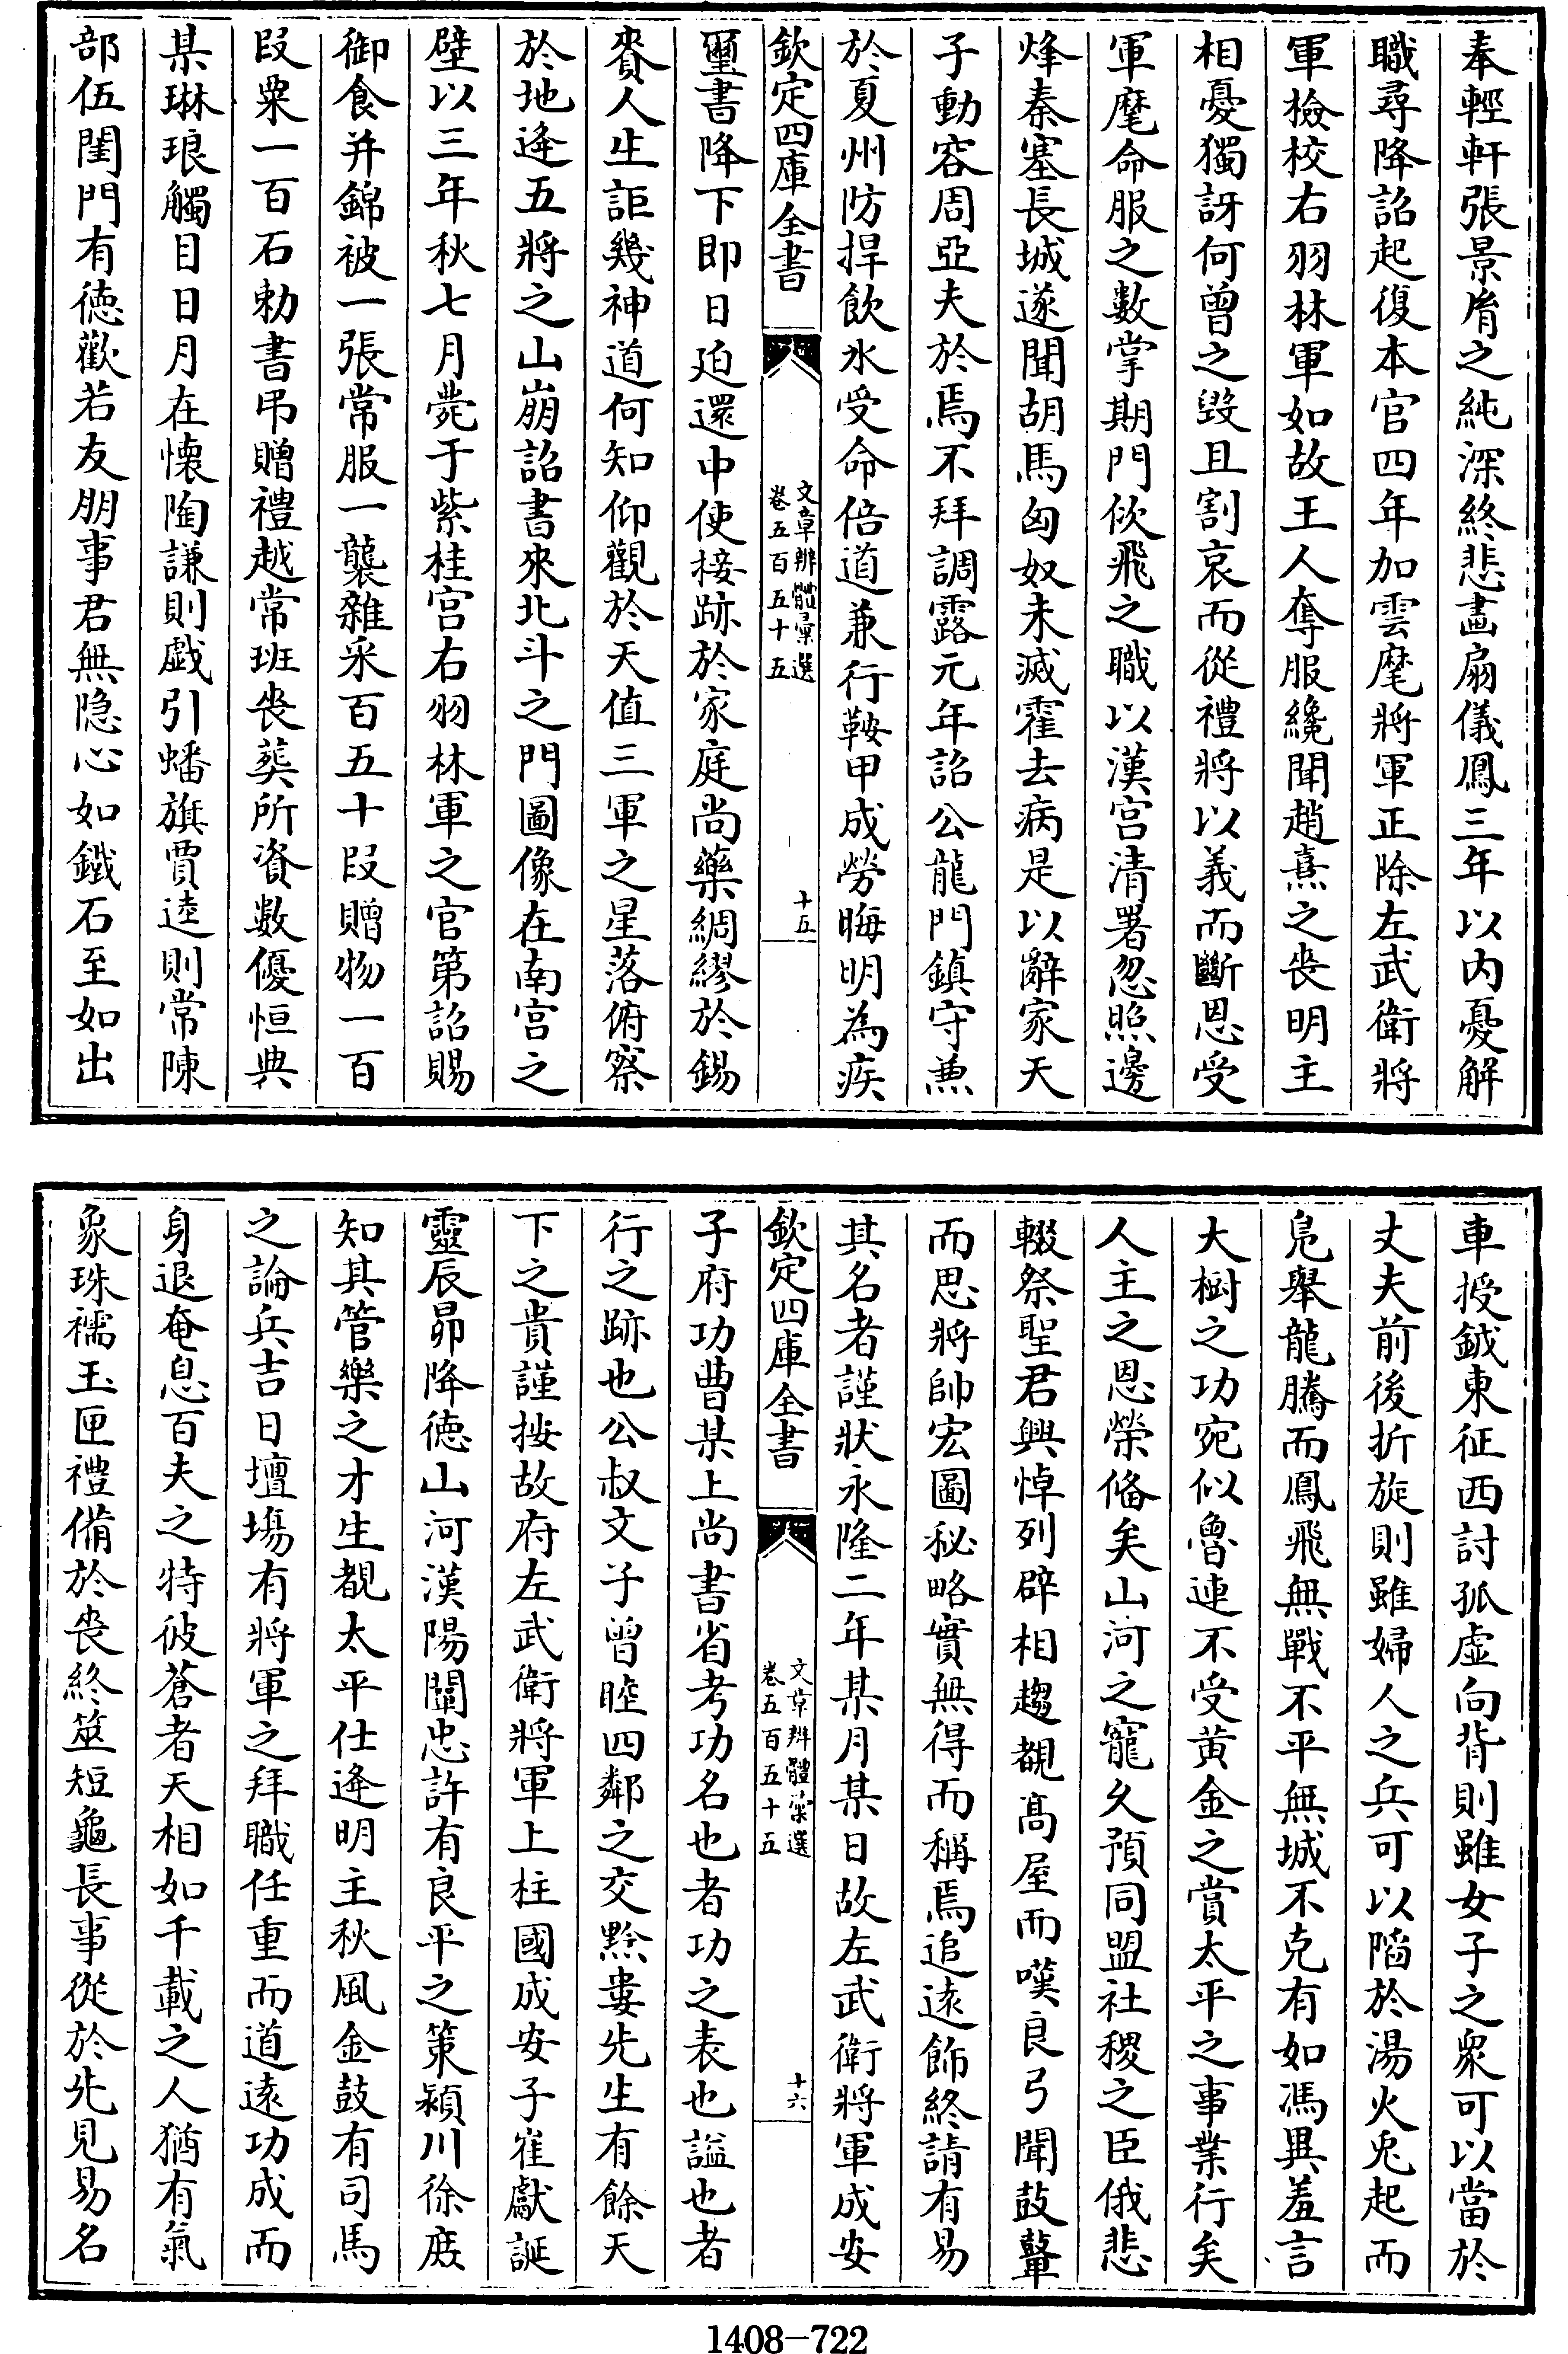 奉輕軒張景胤之純深終悲畫扇儀鳳三年以内憂解
職尋降詔起復本官四年加雲麾將軍正除左武衛將
軍檢校右羽林軍如故王人奪服纔聞趙熹之喪明主
相憂獨訝何曾之毀且割哀而從禮將以義而斷恩受
軍麾命服之數掌期門佽飛之職以漢宫清署忽照邊
烽秦塞長城遂聞胡馬匈奴未滅霍去病是以辭家天
子動容周亞夫於焉不拜調露元年詔公龍門鎮守兼
於夏州防捍飲氷受命倍道兼行鞍甲成勞晦明為疾
欽定四庫全書
文章辨體彙選
卷五百五十五
十五
璽書降下即日廹還中使接跡於家庭尚藥綢繆於錫
賚人生詎幾神道何知仰觀於天值三軍之星落俯察
於地逄五將之山崩詔書來北斗之門圖像在南宫之
壁以三年秋七月薨于紫桂宫右羽林軍之官第詔賜
御食并錦被一張常服一襲雜采百五十段贈物一百
段粟一百石勅書弔贈禮越常班喪葬所資數優恒典
某琳琅觸目日月在懐陶謙則戯引蟠旗賈逵則常陳
部伍閨門有徳歡若友朋事君無隐心如鐵石至如出
車授鉞東征西討孤虚向背則雖女子之衆可以當於
丈夫前後折旋則雖婦人之兵可以䧟於湯火兎起而
鳬舉龍騰而鳳飛無戰不平無城不克有如馮異羞言
大樹之功宛似魯連不受黄金之賞太平之事業行矣
人主之恩榮偹矣山河之寵久預同盟社稷之臣俄悲
輟祭聖君興悼列辟相趨覩髙屋而嘆良弓聞鼓鼙
而思將帥宏圖秘略實無得而稱焉追逺飾終請有易
其名者謹狀永隆二年某月某日故左武衛將軍成安
欽定四庫全書
文章辨體彙選
卷五百五十五
十六
子府功曹某上尚書省考功名也者功之表也諡也者
行之跡也公叔文子曾睦四鄰之交黔婁先生有餘天
下之貴謹按故府左武衛將軍上柱國成安子崔獻誕
靈辰昴降徳山河漢陽闡忠許有良平之策潁川徐庶
知其管樂之才生覩太平仕逄明主秋風金鼓有司馬
之論兵吉日壇塲有將軍之拜職任重而道逺功成而
身退奄息百夫之特彼蒼者天相如千載之人猶有氣
象珠襦玉匣禮備於喪終筮短龜長事從於兆見易名
1408-722